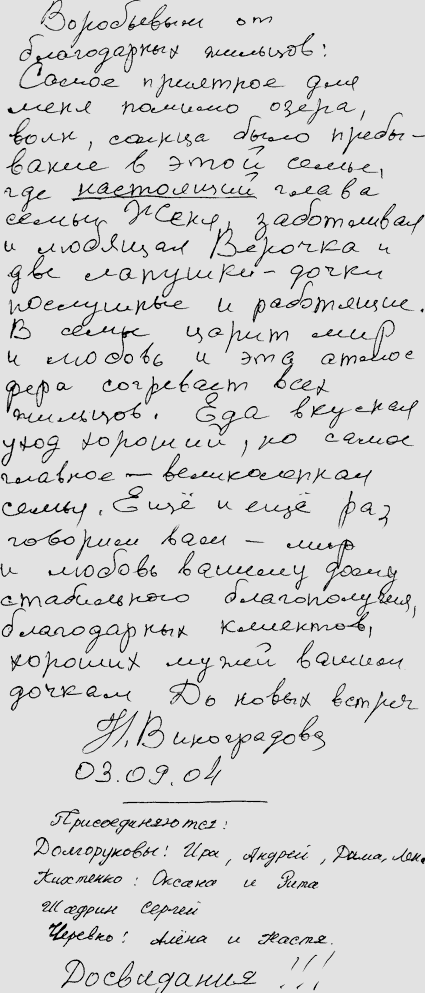 Воробьевым от
благодарных жильцов:
Самое приятное для
меня помимо озера,
волн, солнца было пребы-
вание в этой семье,
где настоящий глава
семьи Женя, заботливая
и любящая Верочка и
две лапушки-дочки
послушные и работящие.
В семье царит мир
и любовь и эта атмос
фера согревает всех
жильцов. Еда вкусная
уход хороший, но самое
главное – великолепная
семья. Ещё и ещё раз
говорим вам – мир
и любовь вашему дому
стабильного благополучия,
благодарных клиентов,
хороших мужей вашим
дочкам До новых встреч
Н. Виноградова
03.09.04
Присоединяются:
Долгоруковы: Ира, Андрей, Дима, Лена
Кихтенко: Оксана и Рита
Шадрин Сергей
Черевко: Алёна и Настя.
Досвидания !!!